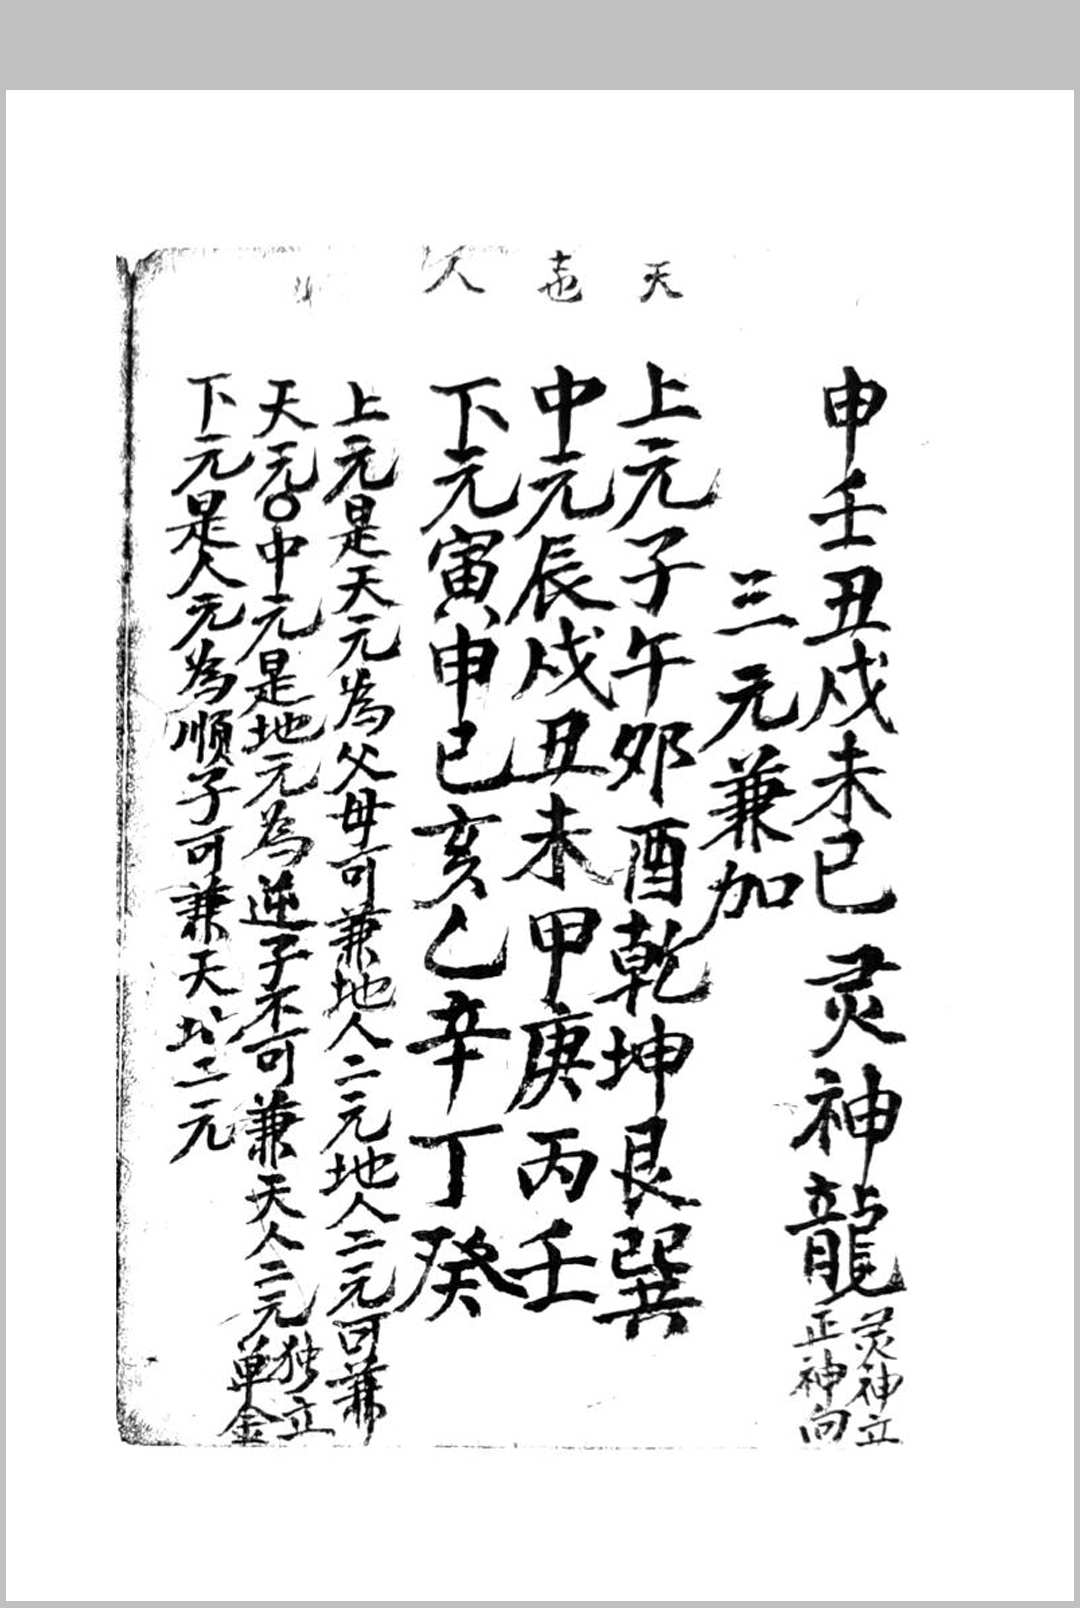 申壬丑戌未巳 灵神龍
灵神立
正神向
三元兼加
天
上元子午卯酉乾坤艮巽
地
中元辰戌丑未甲庚丙壬
人
下元寅申巳亥乙辛丁癸
上元是天元為父母可兼地人二元地人二元可兼
天元〇中元是地元為逆子不可兼天人二元
独立
单金
下元是人元為順子可兼天地二元